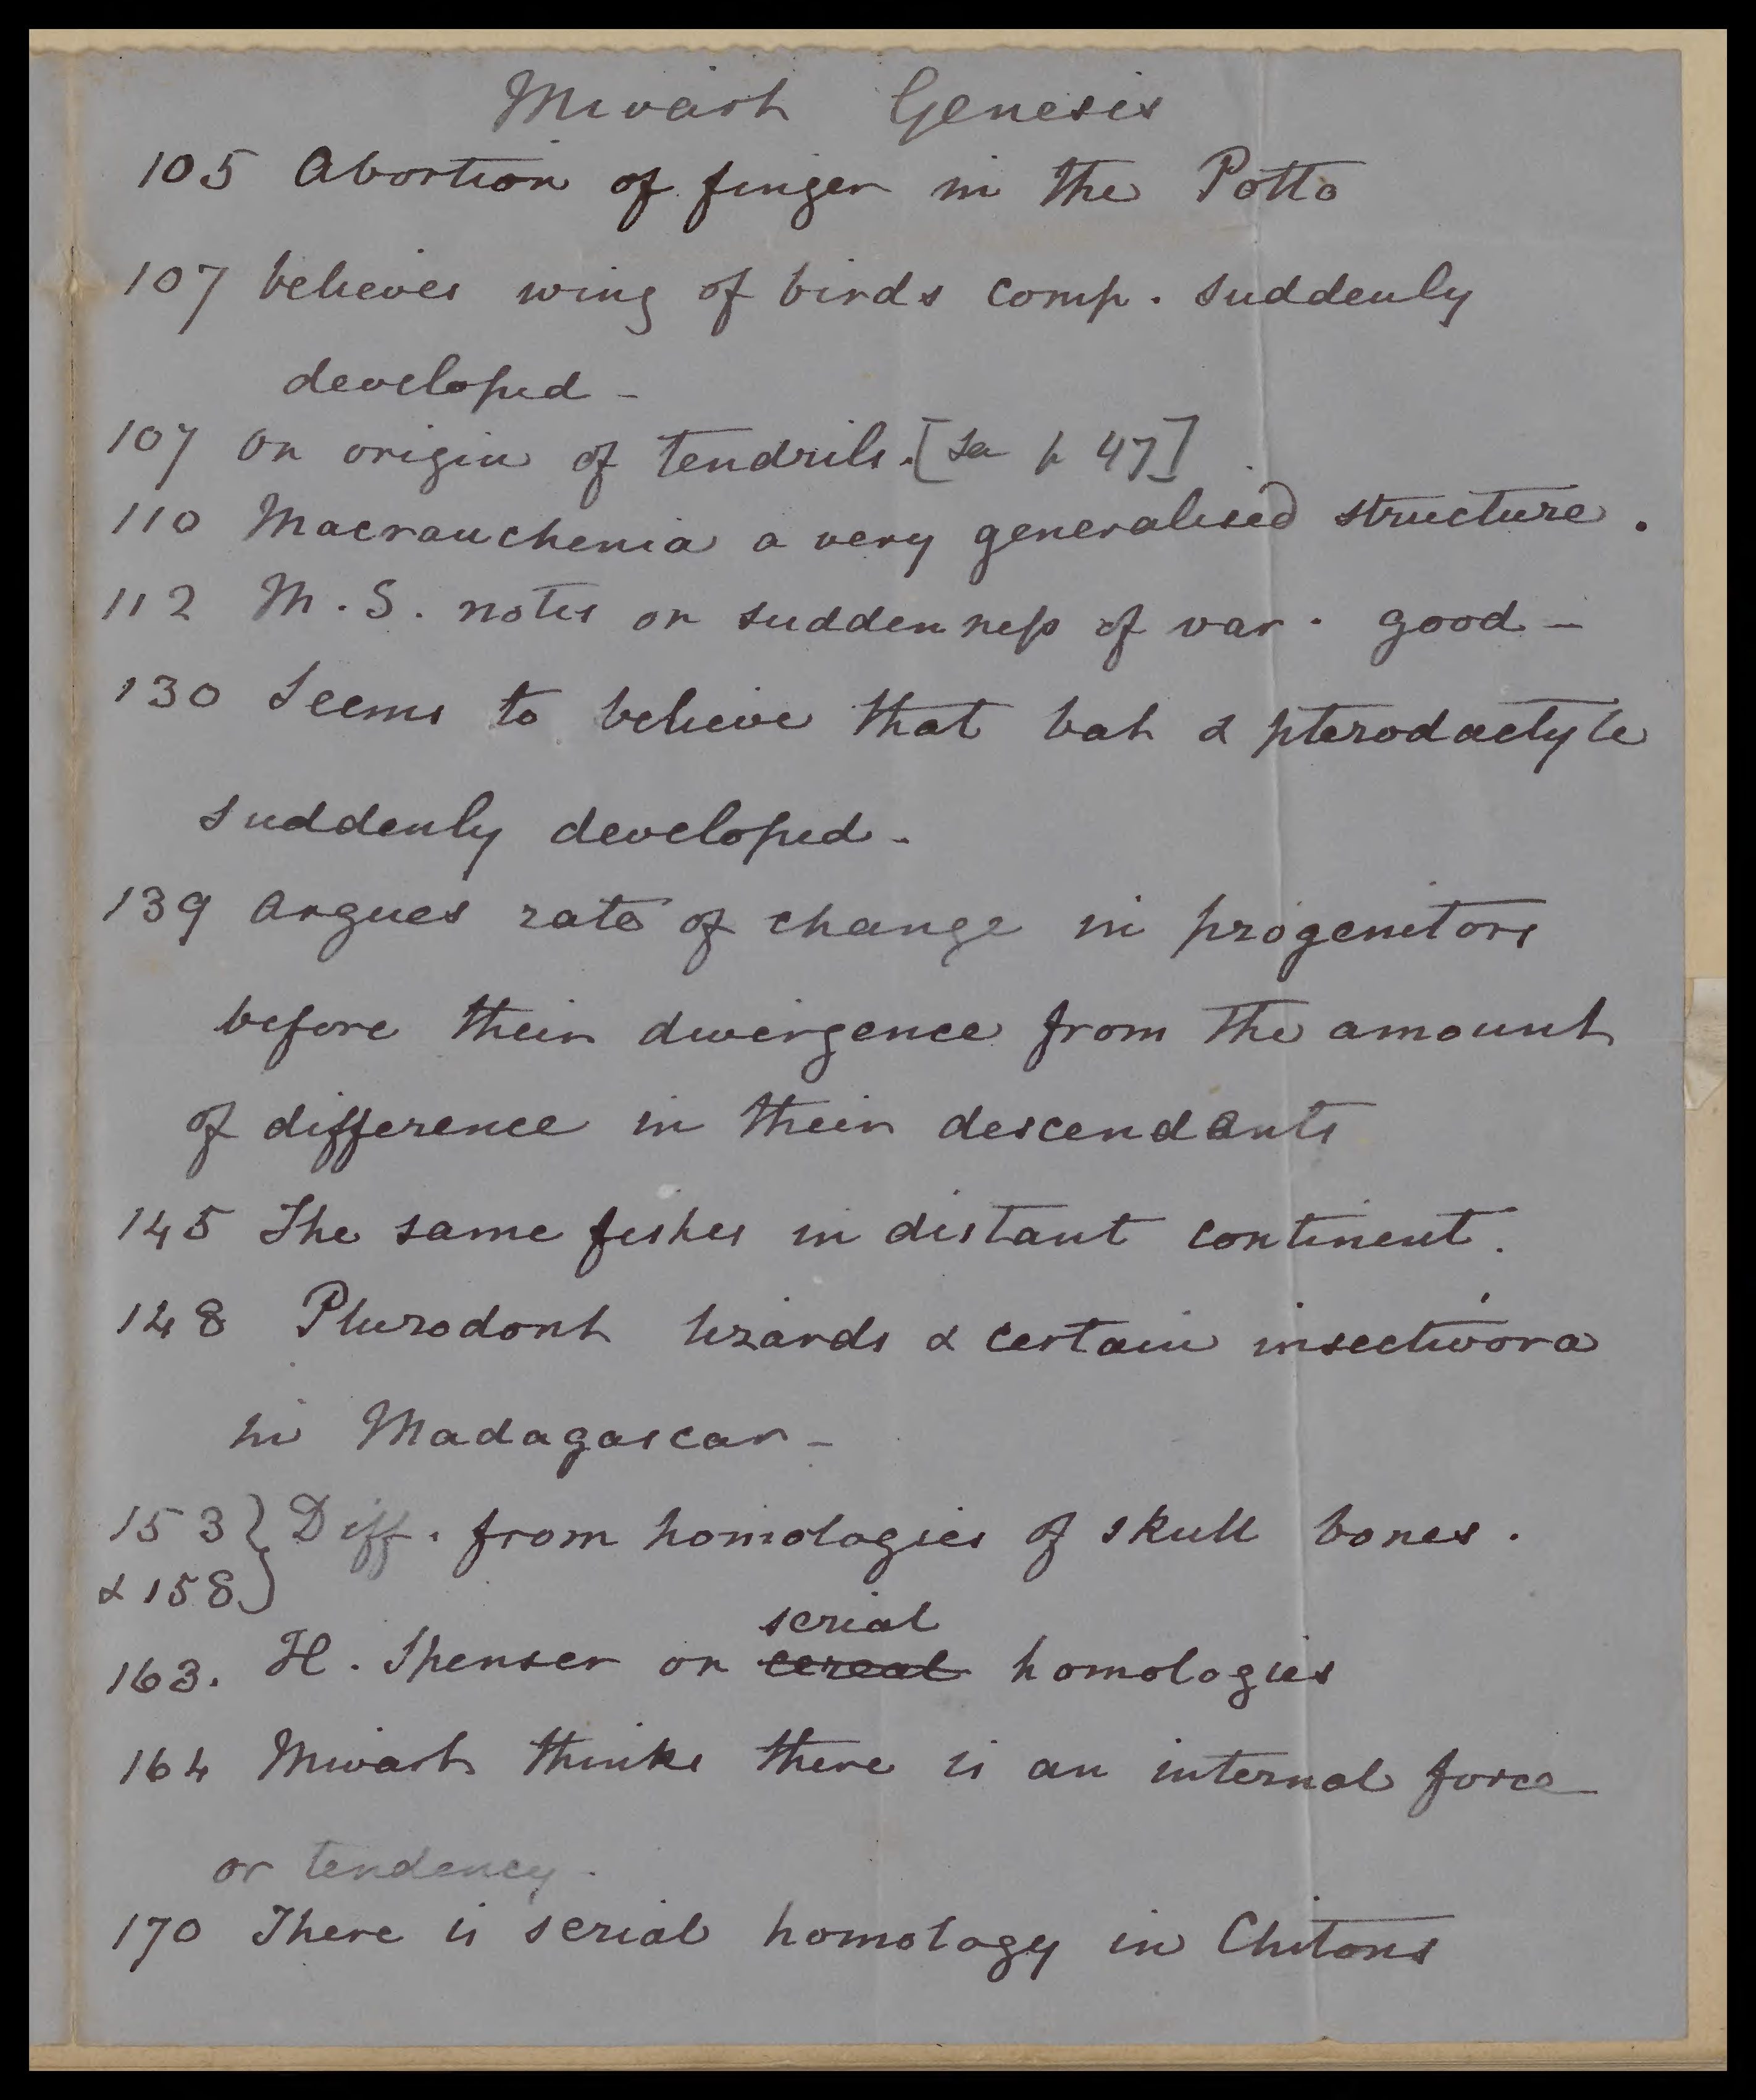 Mivart Genesis
105 Abortion of finger in the Potto
107 believes wing of birds comp. suddenly
developed -
107 on origin of tendrils. [Sa p 47]
110 Macrauchenia a very generalised structure.
112 M.S. notes on suddenness of var. good -
130 Seems to believe that bat & pterodactyle
suddenly developed -
139 Argues rate of change in progenitors
before their divergence from the amount
of difference in their descendants
145 The same fishes in distant continent.
148 Plurodont lizards & certain insectivora
in Madagascar -
153 } Diff. from homologies of skull bones.
& 158 }
serial
163. H. Spenser on cereal homologies
164 Mivart thinks there is an internal force
or tendency.
170 There is serial homology in Chitons